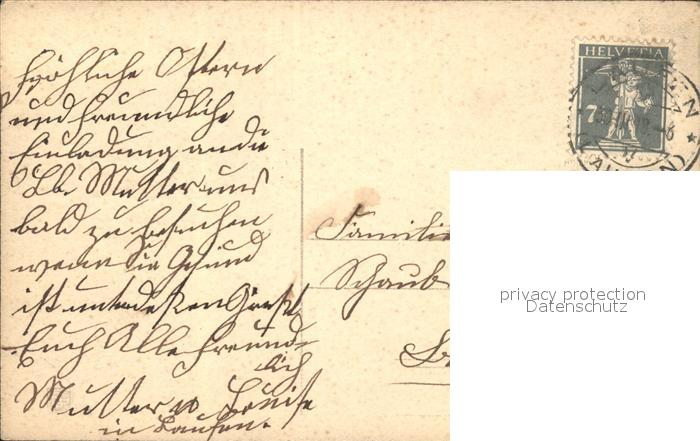 Fröhliche Ostern
und freundliche
Einladung an die
Lb. Mutter uns
bald zu besuchen
wenn Sie Gesund
ist unterdeßen Grüßt
Euch Alle freund-
lich
Mutter u Louise
in Laufen.
HELVETIA
7
Familie
Schaub
privacy protection
Datenschutz